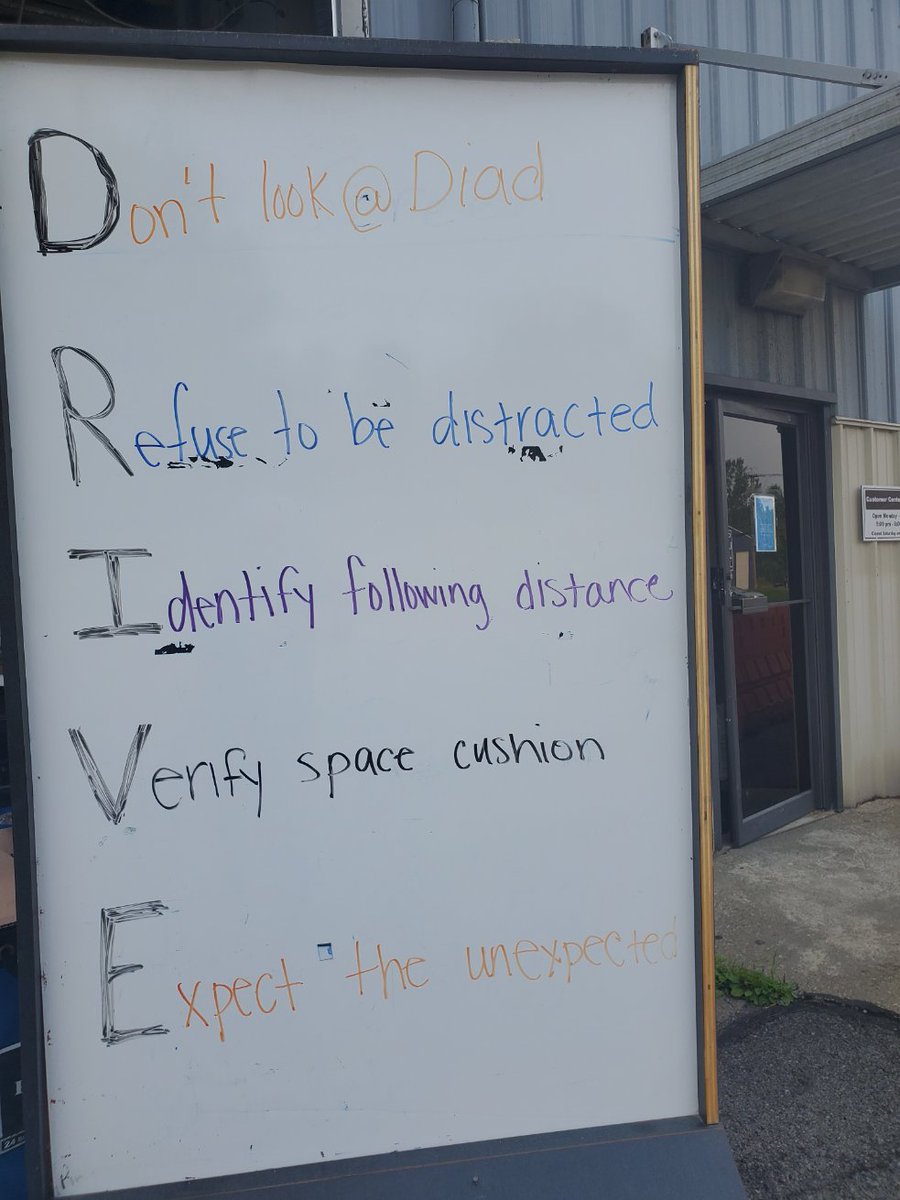 Don't look @ Diad
Refuse to be distracted
Identify following distance
Verify space cushion
Expect the unexpected
Customer Cente
Open Monday -